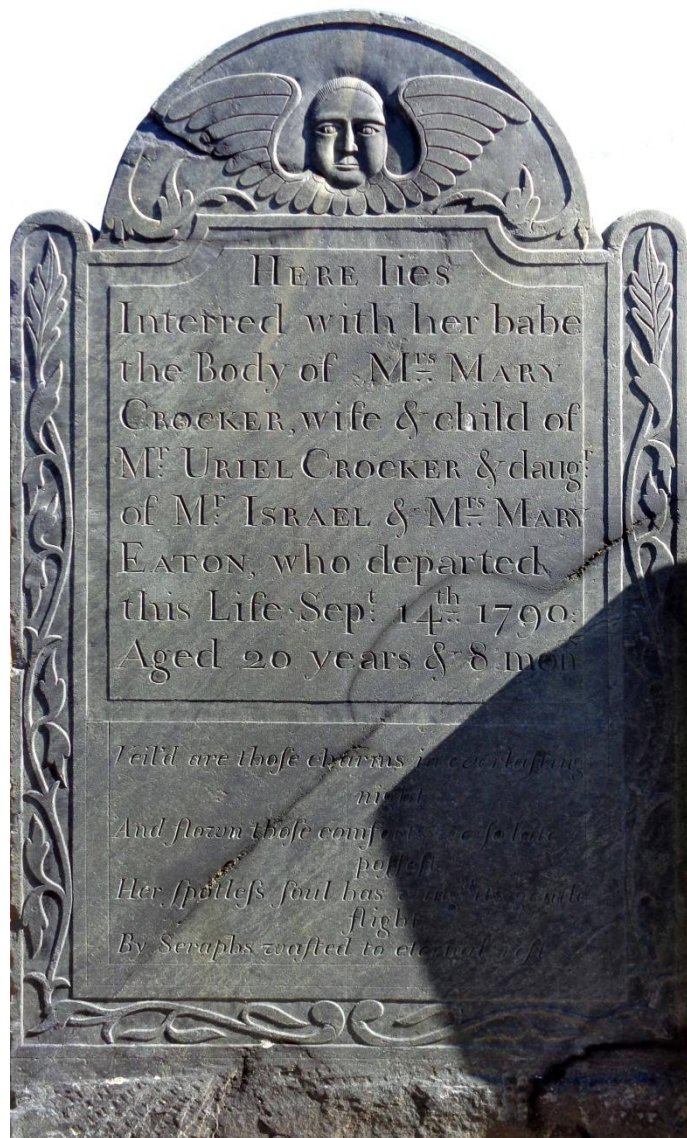 HERE lies
Interred with her babe
the Body of Mrs MARY
CROCKER, wife & child of
Mr. URIEL CROCKER & daugr.
of Mr. ISRAEL & Mrs MARY
EATON, who departed
this Life Sept. 14th 1790.
Aged 20 years & 8 mon
Veil'd are thoſe charms in everlaſting
night
And flown thoſe comforts ſo late
poſſeſt
Her ſpotleſs ſoul has its
flight
By Seraphs wafted to eternal reſt